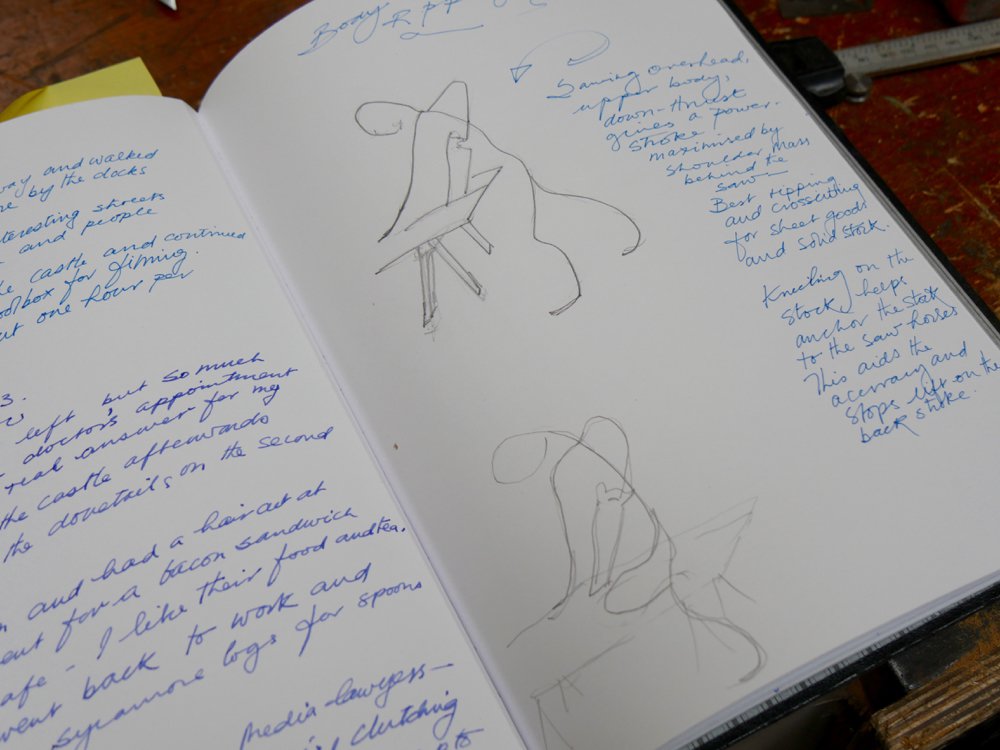 way and walked
by the docks
interesting streets
and people
castle and continued
toolbox for filming.
one hour per
3.
left but so much
doctor's appointment
real answer for my
the castle afterwards
the dovetails on the second
and had a haircut at
for a bacon sandwich
I like their food and tea.
went back to work and
sycamore logs for spoons
Media-lawyers—
clutching
to
Body
Sawing overhead,
upper body,
down-thrust
gives a power.
stroke!
maximised by
shoulder mass
behind the
saw—
Best ripping
and crosscutting
for sheet goods
and solid stock.
Kneeling on the
stock helps
anchor the stock
to the saw horses
This aids the
accuracy and
stops lift on the
back stroke.